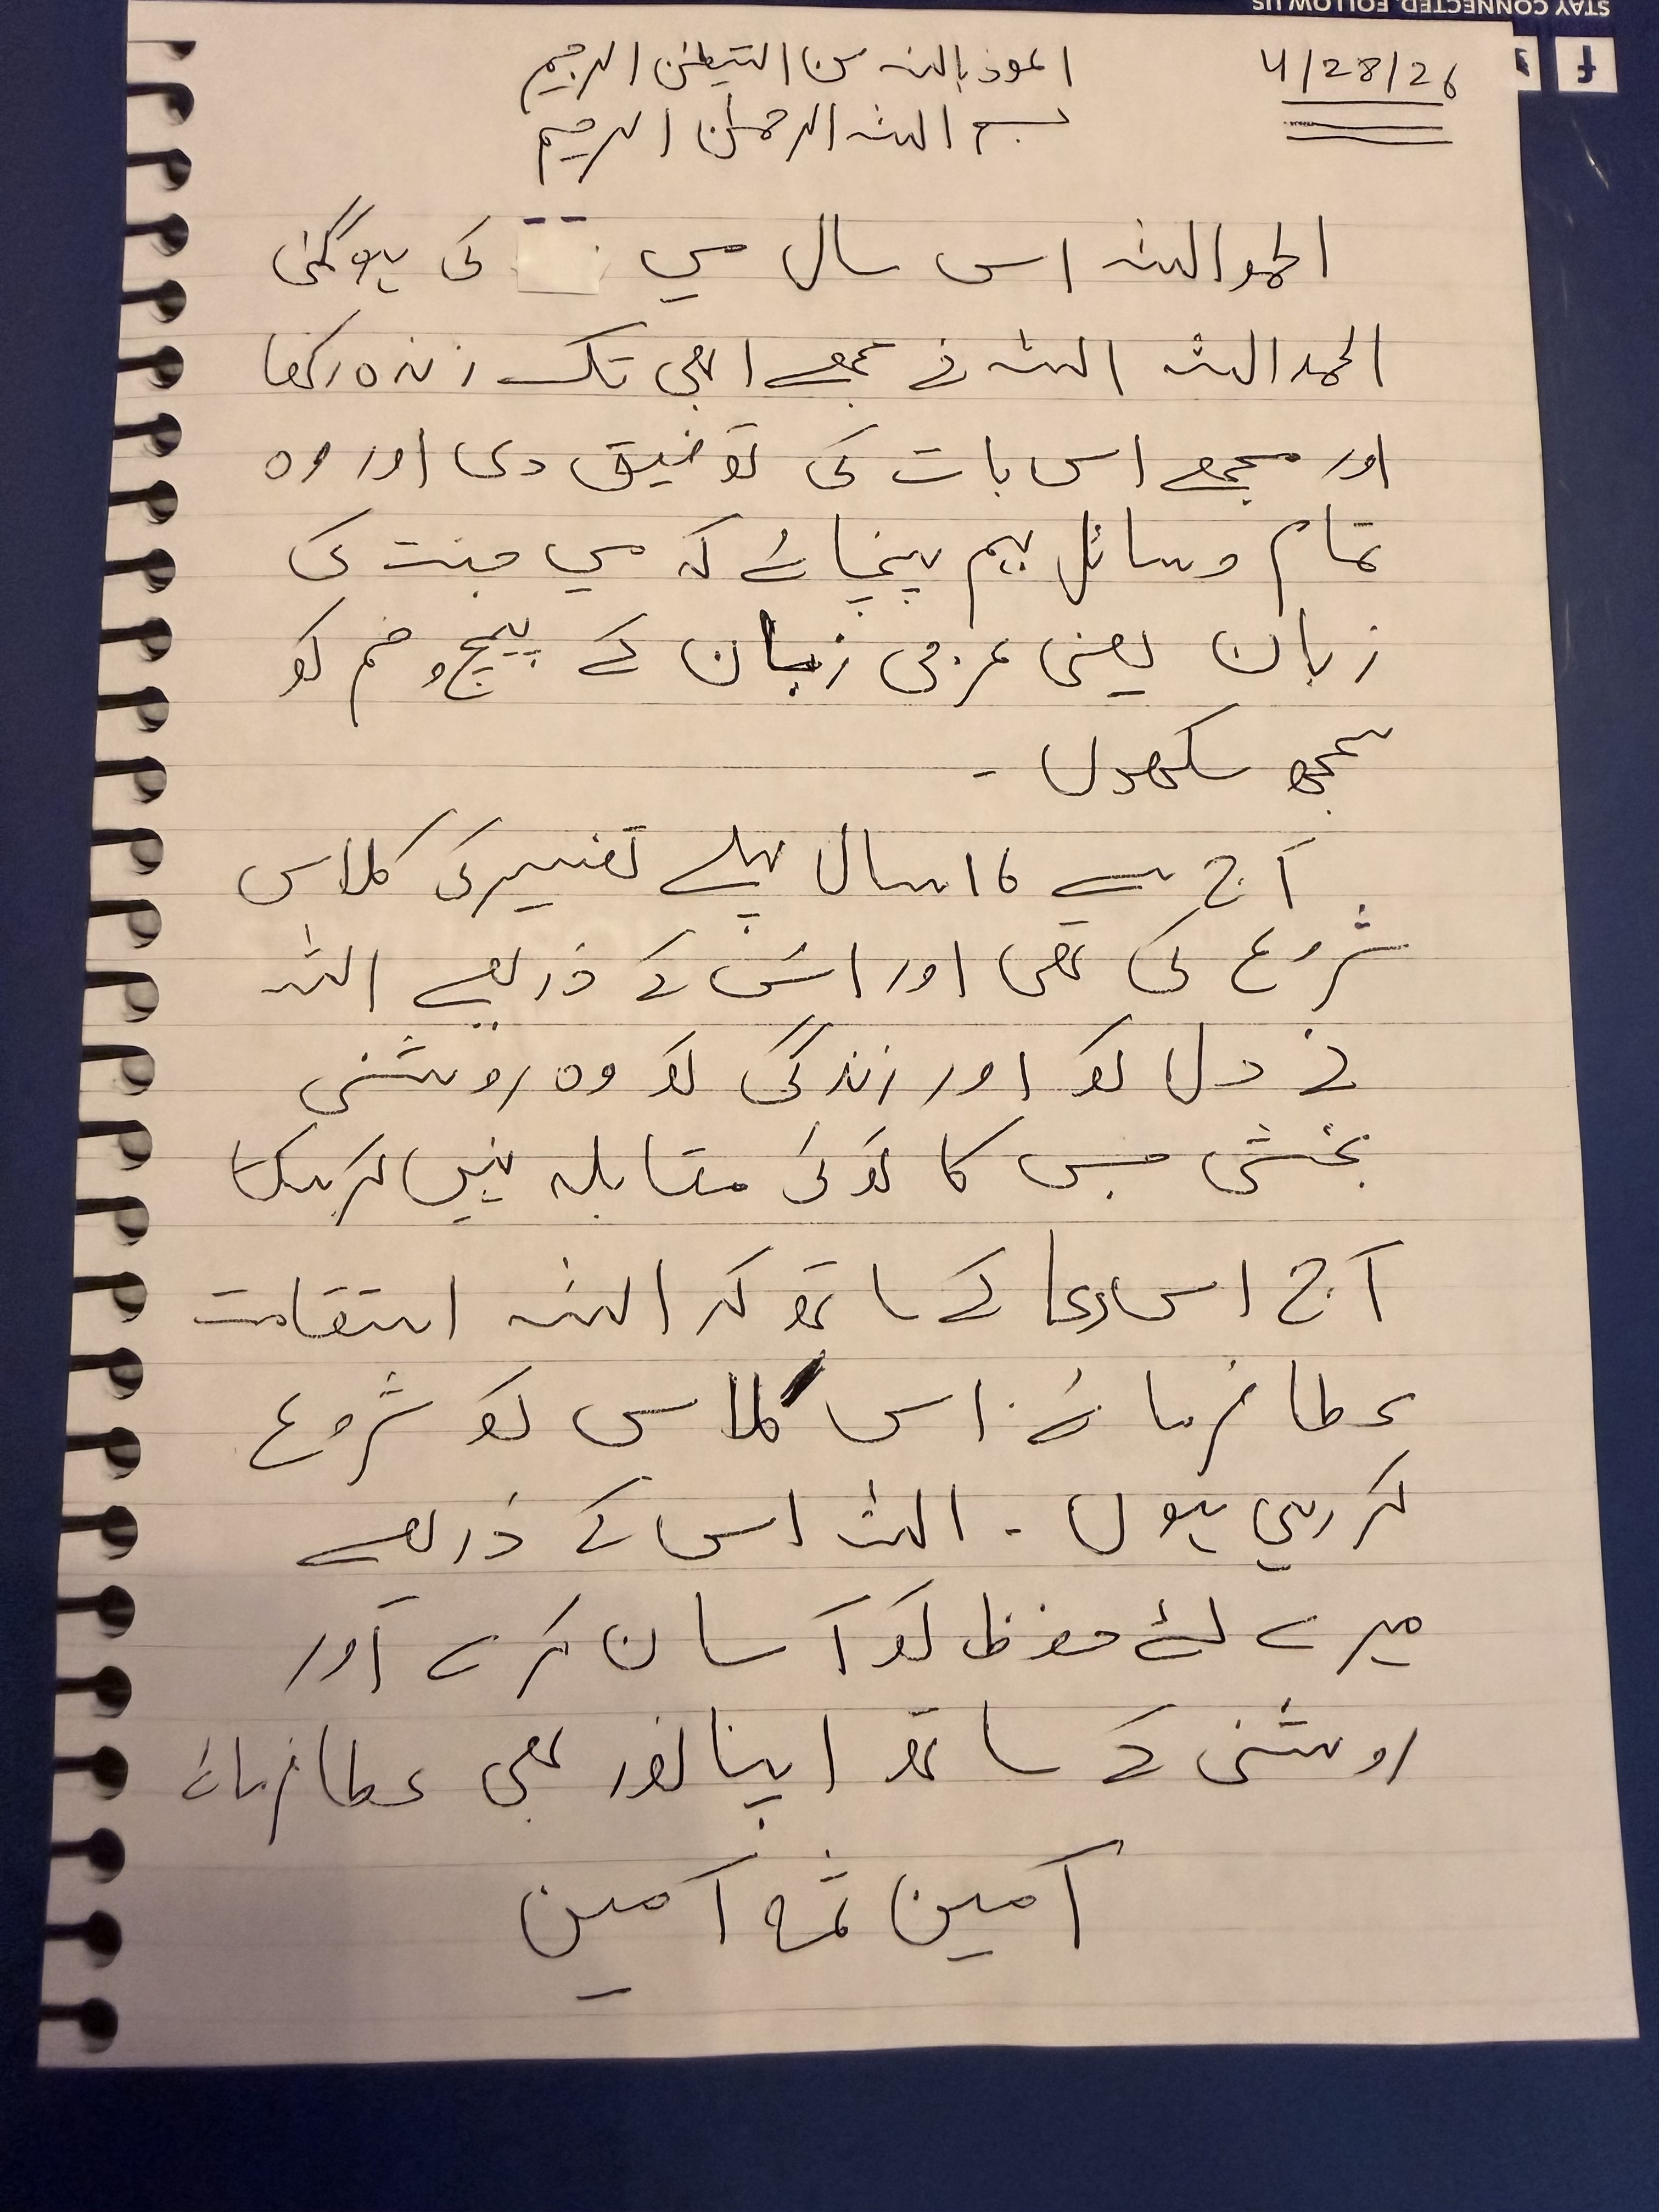 STAY CONNECTED, FOLLOW US
4/28/26
اعوذ باللہ من الشیطٰن الرجیم
بسم اللہ الرحمٰن الرحیم
الحمداللہ اس سال میں کی ہوگئی
الحمداللہ اللہ نے مجھے ابھی تک زندہ رکھا
اور مجھے اس بات کی توفیق دی اور وہ
تمام وسائل بہم پہنچائے کہ میں جنت کی
زبان یعنی عربی زبان کے پیچ و خم کو
سمجھ سکھوں ۔
آج سے ۱۶ سال پہلے تفسیر کی کلاس
شروع کی تھی اور اس کے ذریعے اللہ
نے دل کو اور زندگی کو وہ روشنی
بخشی جس کا کوئی مقابلہ نہیں کرسکتا
آج اس دعا کے ساتھ کہ اللہ استقامت
عطا فرمائے اس کلاس کو شروع
کر رہی ہوں ۔ اللہ اس کے ذریعے
میرے لئے حفظ کو آسان کرے اور
روشنی کے ساتھ اپنا نور بھی عطا فرمائے
آمین ثمہ آمین